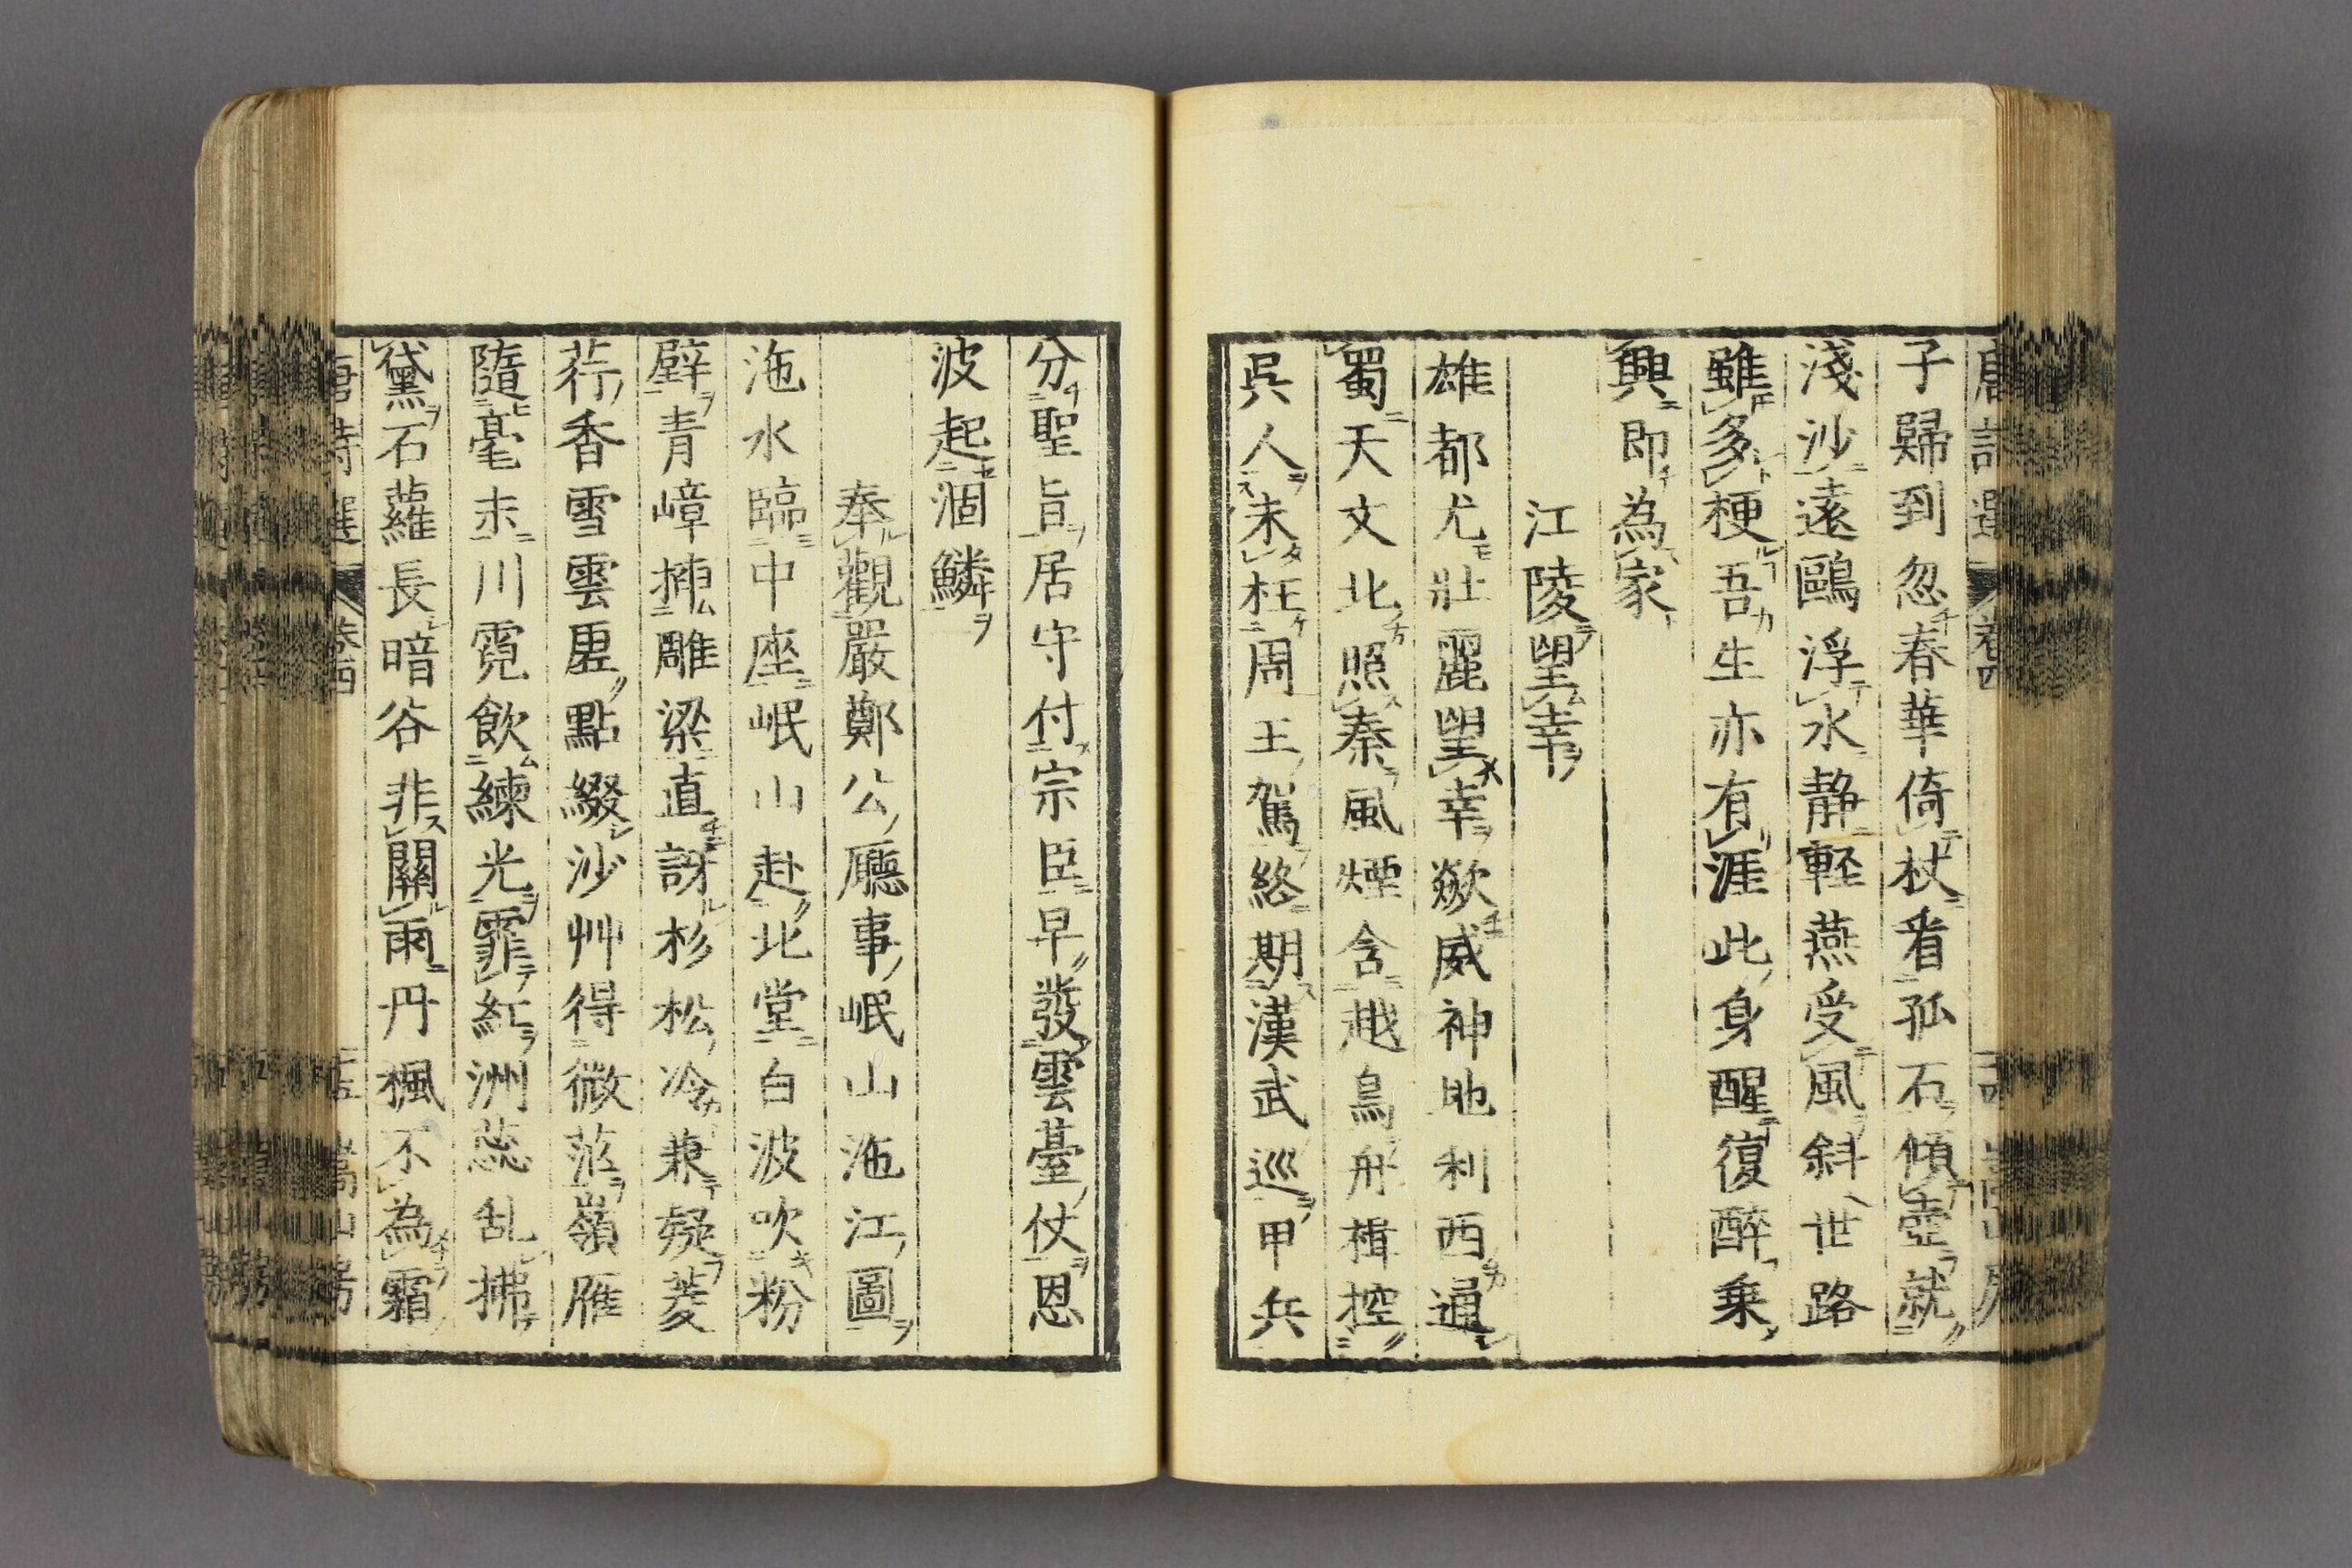 子歸到忽春華倚杖看孤石傾壺就
淺沙遠鷗浮水静軽燕受風斜世路
雖多梗吾生亦有涯此身醒復醉乗
興即為家
江陵望幸
雄都尤壯麗望幸歘威神地利西通
蜀天文北照秦風煙含越鳥舟楫控
呉人未枉周王駕終期漢武巡甲兵
分聖旨居守付宗臣早發雲臺仗恩
波起涸鱗
奉觀嚴鄭公廳事岷山沲江圖
沲水臨中座岷山赴北堂白波吹粉
壁青嶂挿雕梁直訝杉松冷兼疑菱
荇香雪雲虚點綴沙艸得微茫嶺雁
隨毫末川霓飲練光霏紅洲蕊乱拂
黛石蘿長暗谷非關雨丹楓不為霜
唐詩選
卷四
嵩山房